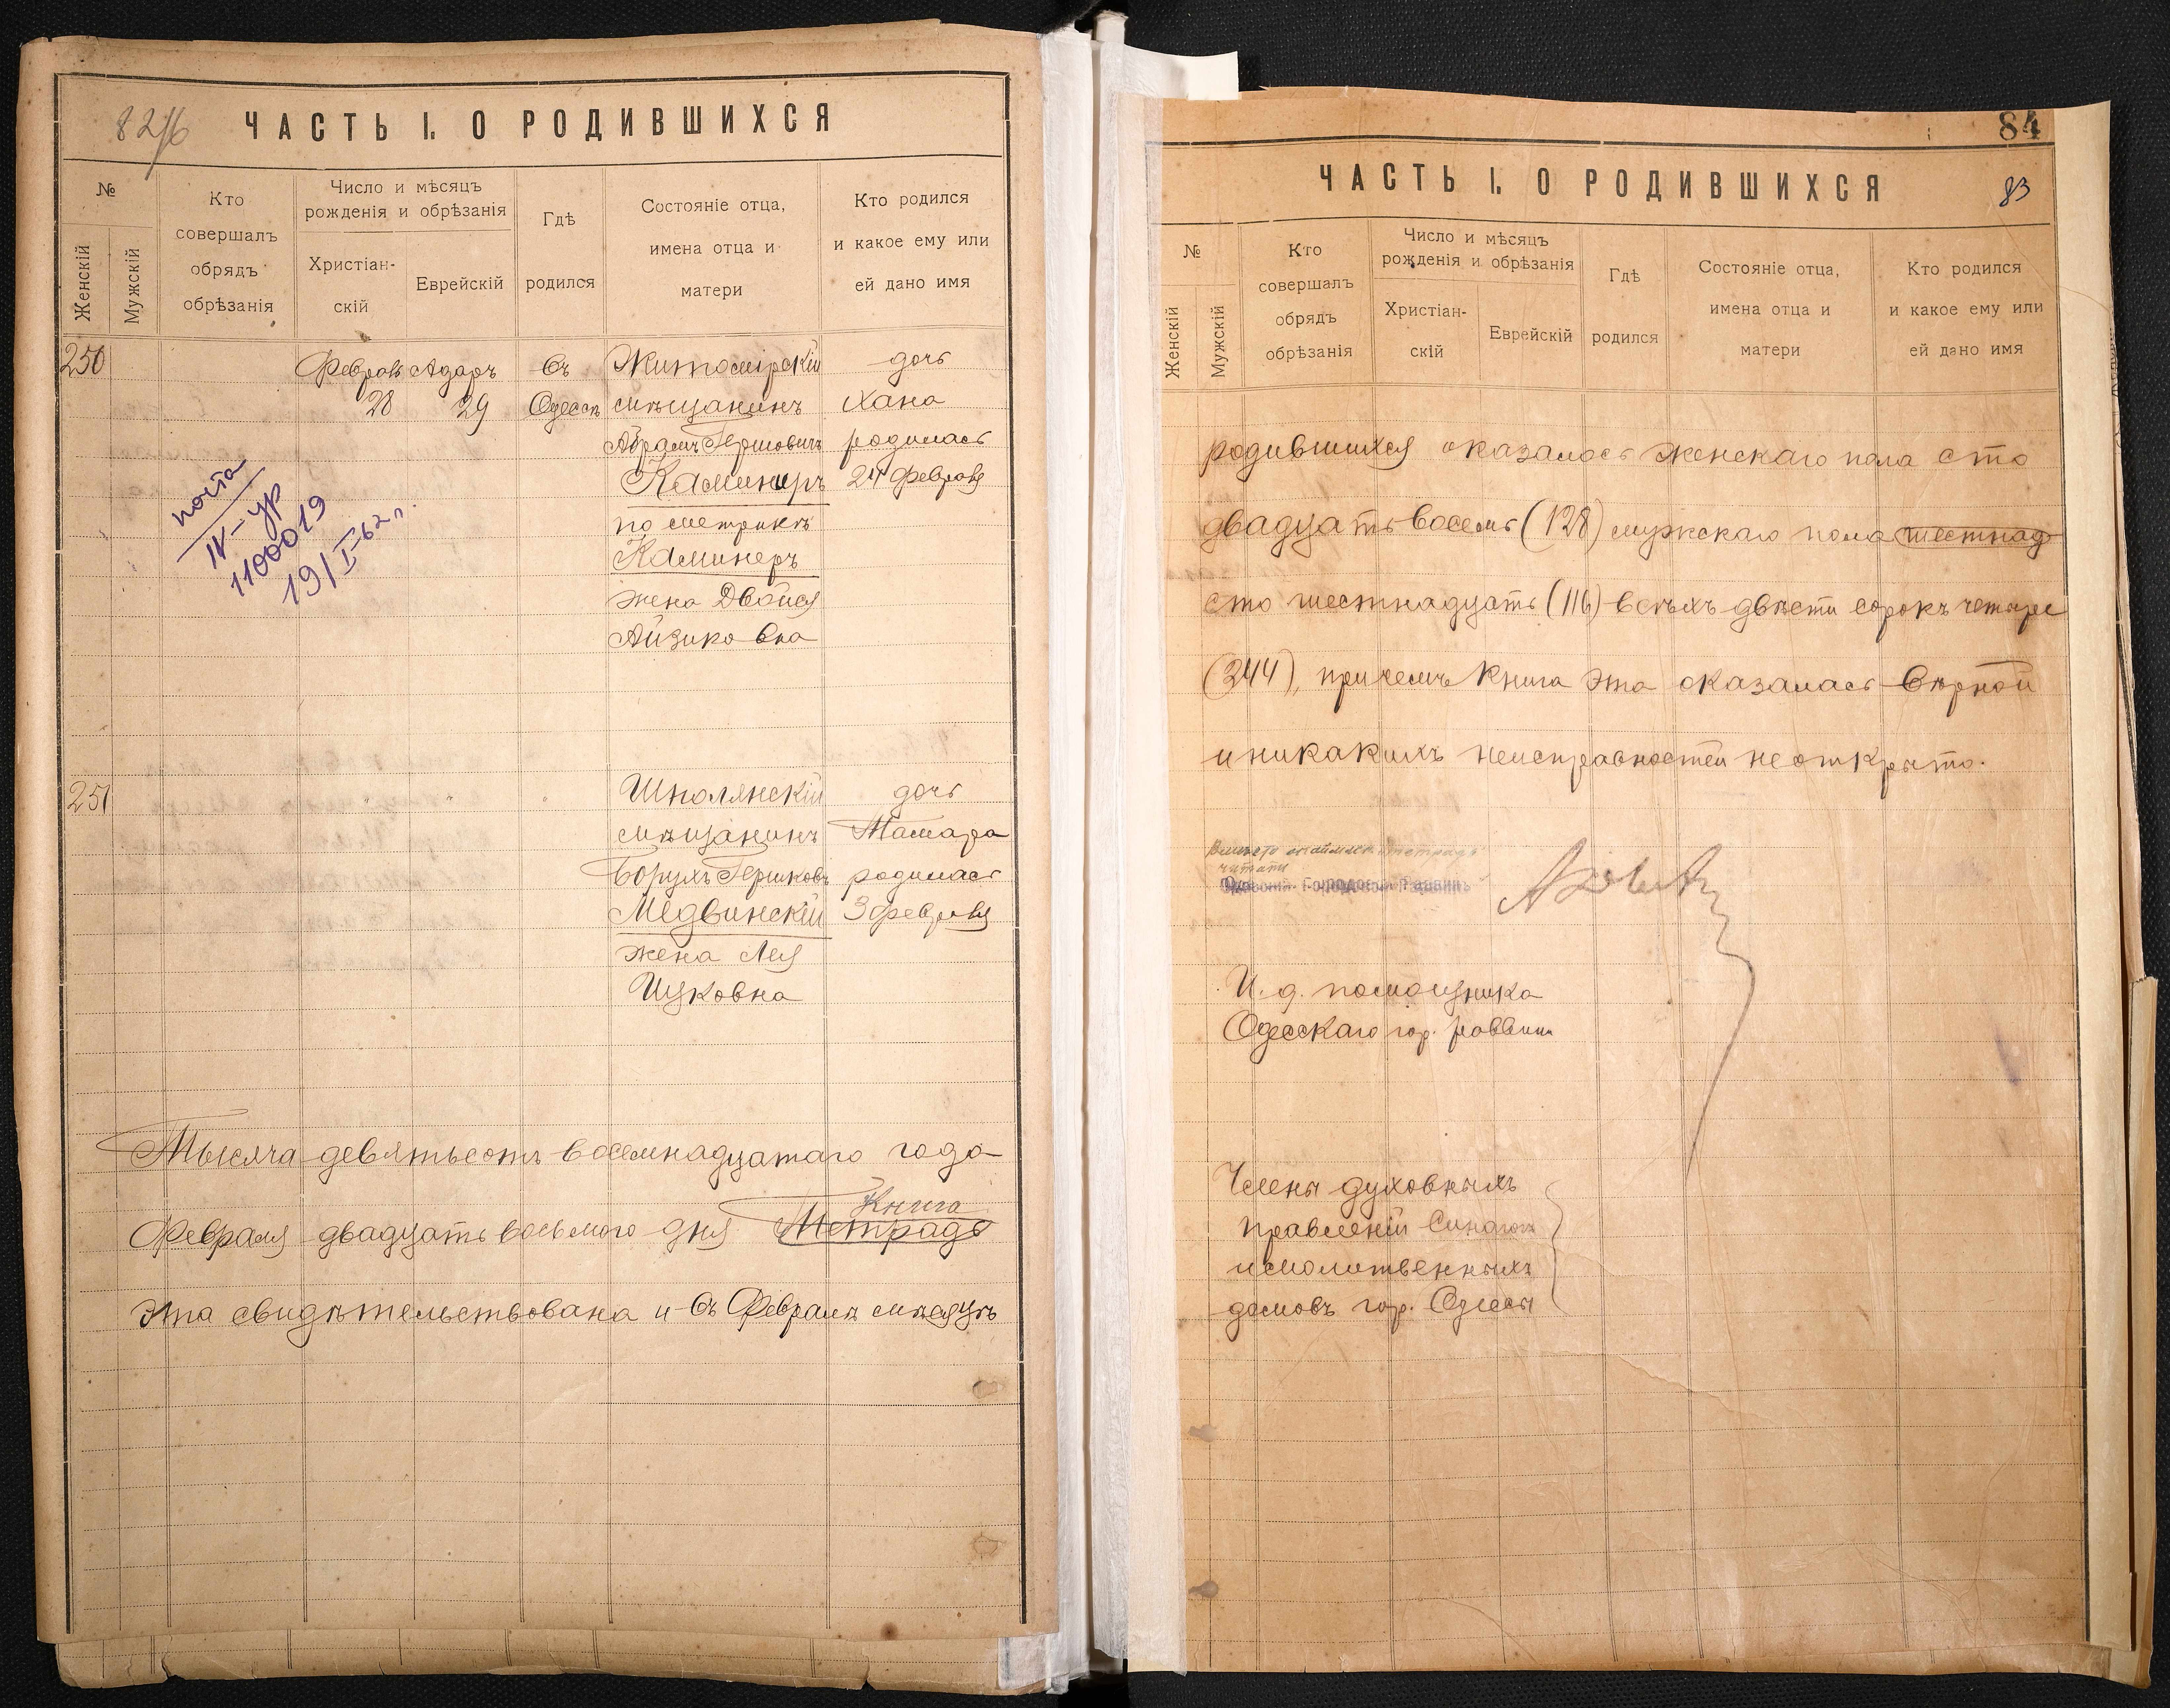 ЧАСТЬ I. О РОДИВШИХСЯ
№
Женскій
Мужскій
Кто
совершалъ
обрядъ
обрѣзанія
Число и мѣсяцъ
рожденія и обрѣзанія
Христіан-
скій
Еврейскій
Гдѣ
родился
Состояніе отца,
имена отца и
матери
Кто родился
и какое ему или
ей дано имя
250
Февраль Адаръ въ Житомірскій дочь
28 29 Одессѣ мѣщанинъ Хана
Абрамъ Гершовичъ родилась
Каминеръ 24 февраля
по метрикѣ
Каминеръ
жена Двойся
Айзиковна
почта
IV-УР
1100019
19/I-62 г.
251 " " " Шполянскій дочь
мѣщанинъ Тамара
Борухъ Гершковъ родилась
Медвинскій 3 февраля
жена Лея
Ицковна
Тысяча девятьсотъ восемнадцатаго года
Книга
Февраля двадцать восьмого дня Тетрадь
эта свидѣтельствована и въ Февралѣ мѣсяцѣ
84
ЧАСТЬ I. О РОДИВШИХСЯ
83
№
Женскій
Мужскій
Кто
совершалъ
обрядъ
обрѣзанія
Число и мѣсяцъ
рожденія и обрѣзанія
Христіан-
скій
Еврейскій
Гдѣ
родился
Состояніе отца,
имена отца и
матери
Кто родился
и какое ему или
ей дано имя
родившихся оказалось женскаго пола сто
двадцать восемь (128) мужскаго пола шестнад
сто шестнадцать (116) всѣхъ двѣсти сорокъ четыре
(244), причемъ книга эта оказалась вѣрной
и никакихъ неисправностей не открыто.
читать
Городской Раввинъ
И. д. помощника
Одесскаго гор. раввина
Члены духовныхъ
правленій Синагогъ
и молитвенныхъ
домовъ гор. Одессы